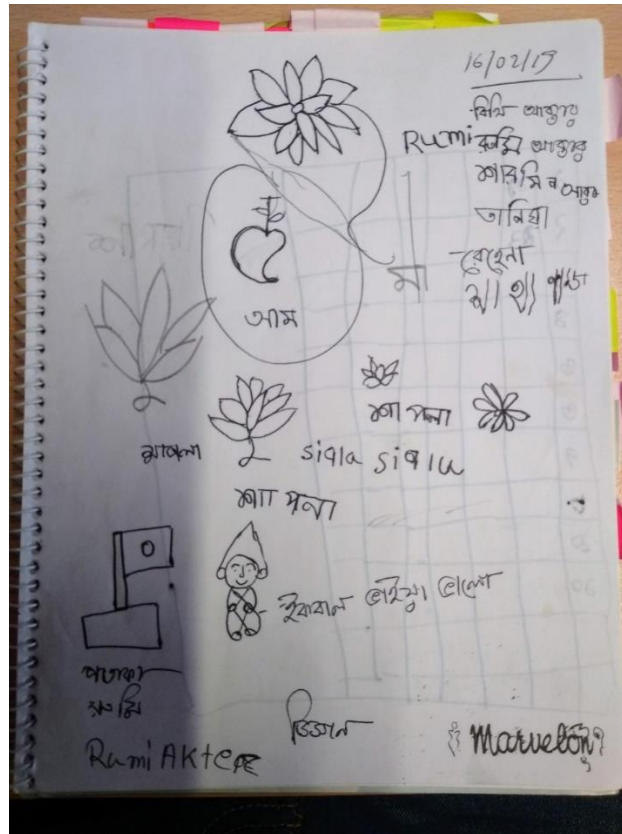 16/02/19
বিথি আক্তার
Rumi রুমি আক্তার
শারমিন আক্তার
তানিয়া
রেহেনা
মা
আম
শাপলা
শাপলা
siqla siqlu
শাপলা
ইকবাল ভাইয়া ভালো
পতাকা
রুমি
ডিজাল
Rumi AKter
Marvelon